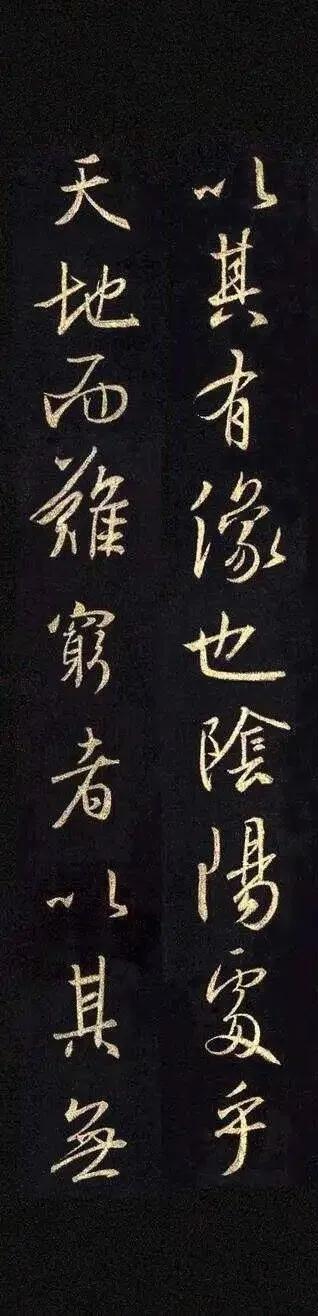 以其有像也陰陽處乎
天地而難窮者以其無